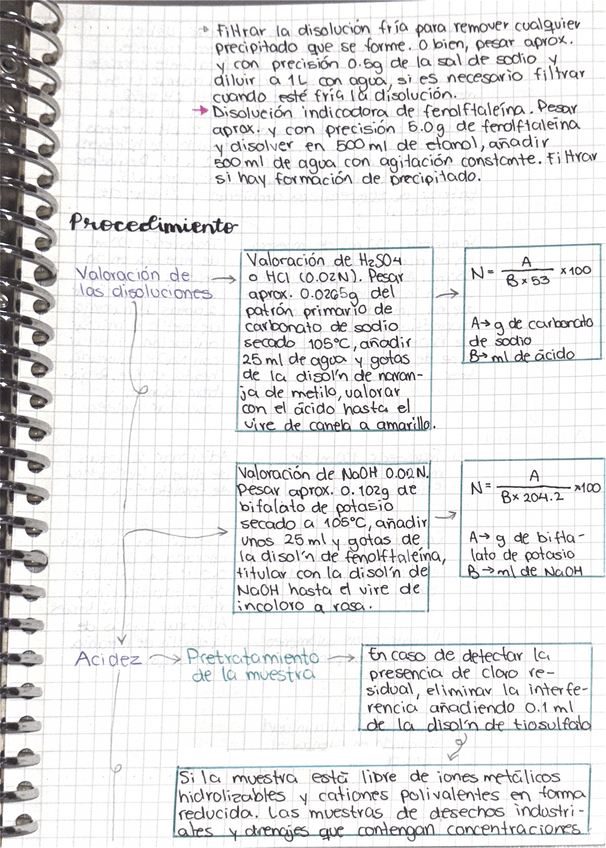 Filtrar la disolución fría para remover cualquier
precipitado que se forme. O bien, pesar aprox.
y con precisión 0.5g de la sal de sodio y
diluir a 1L con agua, si es necesario filtrar
cuando esté fría la disolución.
→ Disolución indicadora de fenolftaleína. Pesar
aprox. y con precisión 5.0g de fenolftaleina
y disolver en 500 ml de etanol, añadir
500 ml de agua con agitación constante. Filtrar
si hay formación de precipitado.
Procedimiento
Valoración de
las disoluciones
Valoración de H₂SO4
o HCl (0.02N). Pesar
aprox. 0.0265g del
patrón primario de
carbonato de sodio
secado 105°C, añadir
25 ml de agua y gotas
de la disol'n de naran-
ja de metilo, valorar
con el ácido hasta el
vire de canela a amarillo.
N = A / B × 53 × 100
A → g de carbonato
de sodio
B → ml de ácido
Valoración de NaOH 0.02N.
Pesar aprox. 0.102g de
biftalato de potasio
secado a 105°C, añadir
unos 25 ml y gotas de
la disol'n de fenolftaleína,
titular con la disol'n de
NaOH hasta el vire de
incoloro a rosa.
N = A / B × 204.2 × 100
A → g de bifta-
lato de potasio
B → ml de NaOH
Acidez → Pretratamiento
de la muestra
En caso de detectar la
presencia de cloro re-
sidual, eliminar la interfe-
rencia añadiendo 0.1 ml
de la disol'n de tiosulfato
Si la muestra está libre de iones metálicos
hidrolizables y cationes polivalentes en forma
reducida. Las muestras de desechos industri-
ales y drenajes que contengan concentraciones